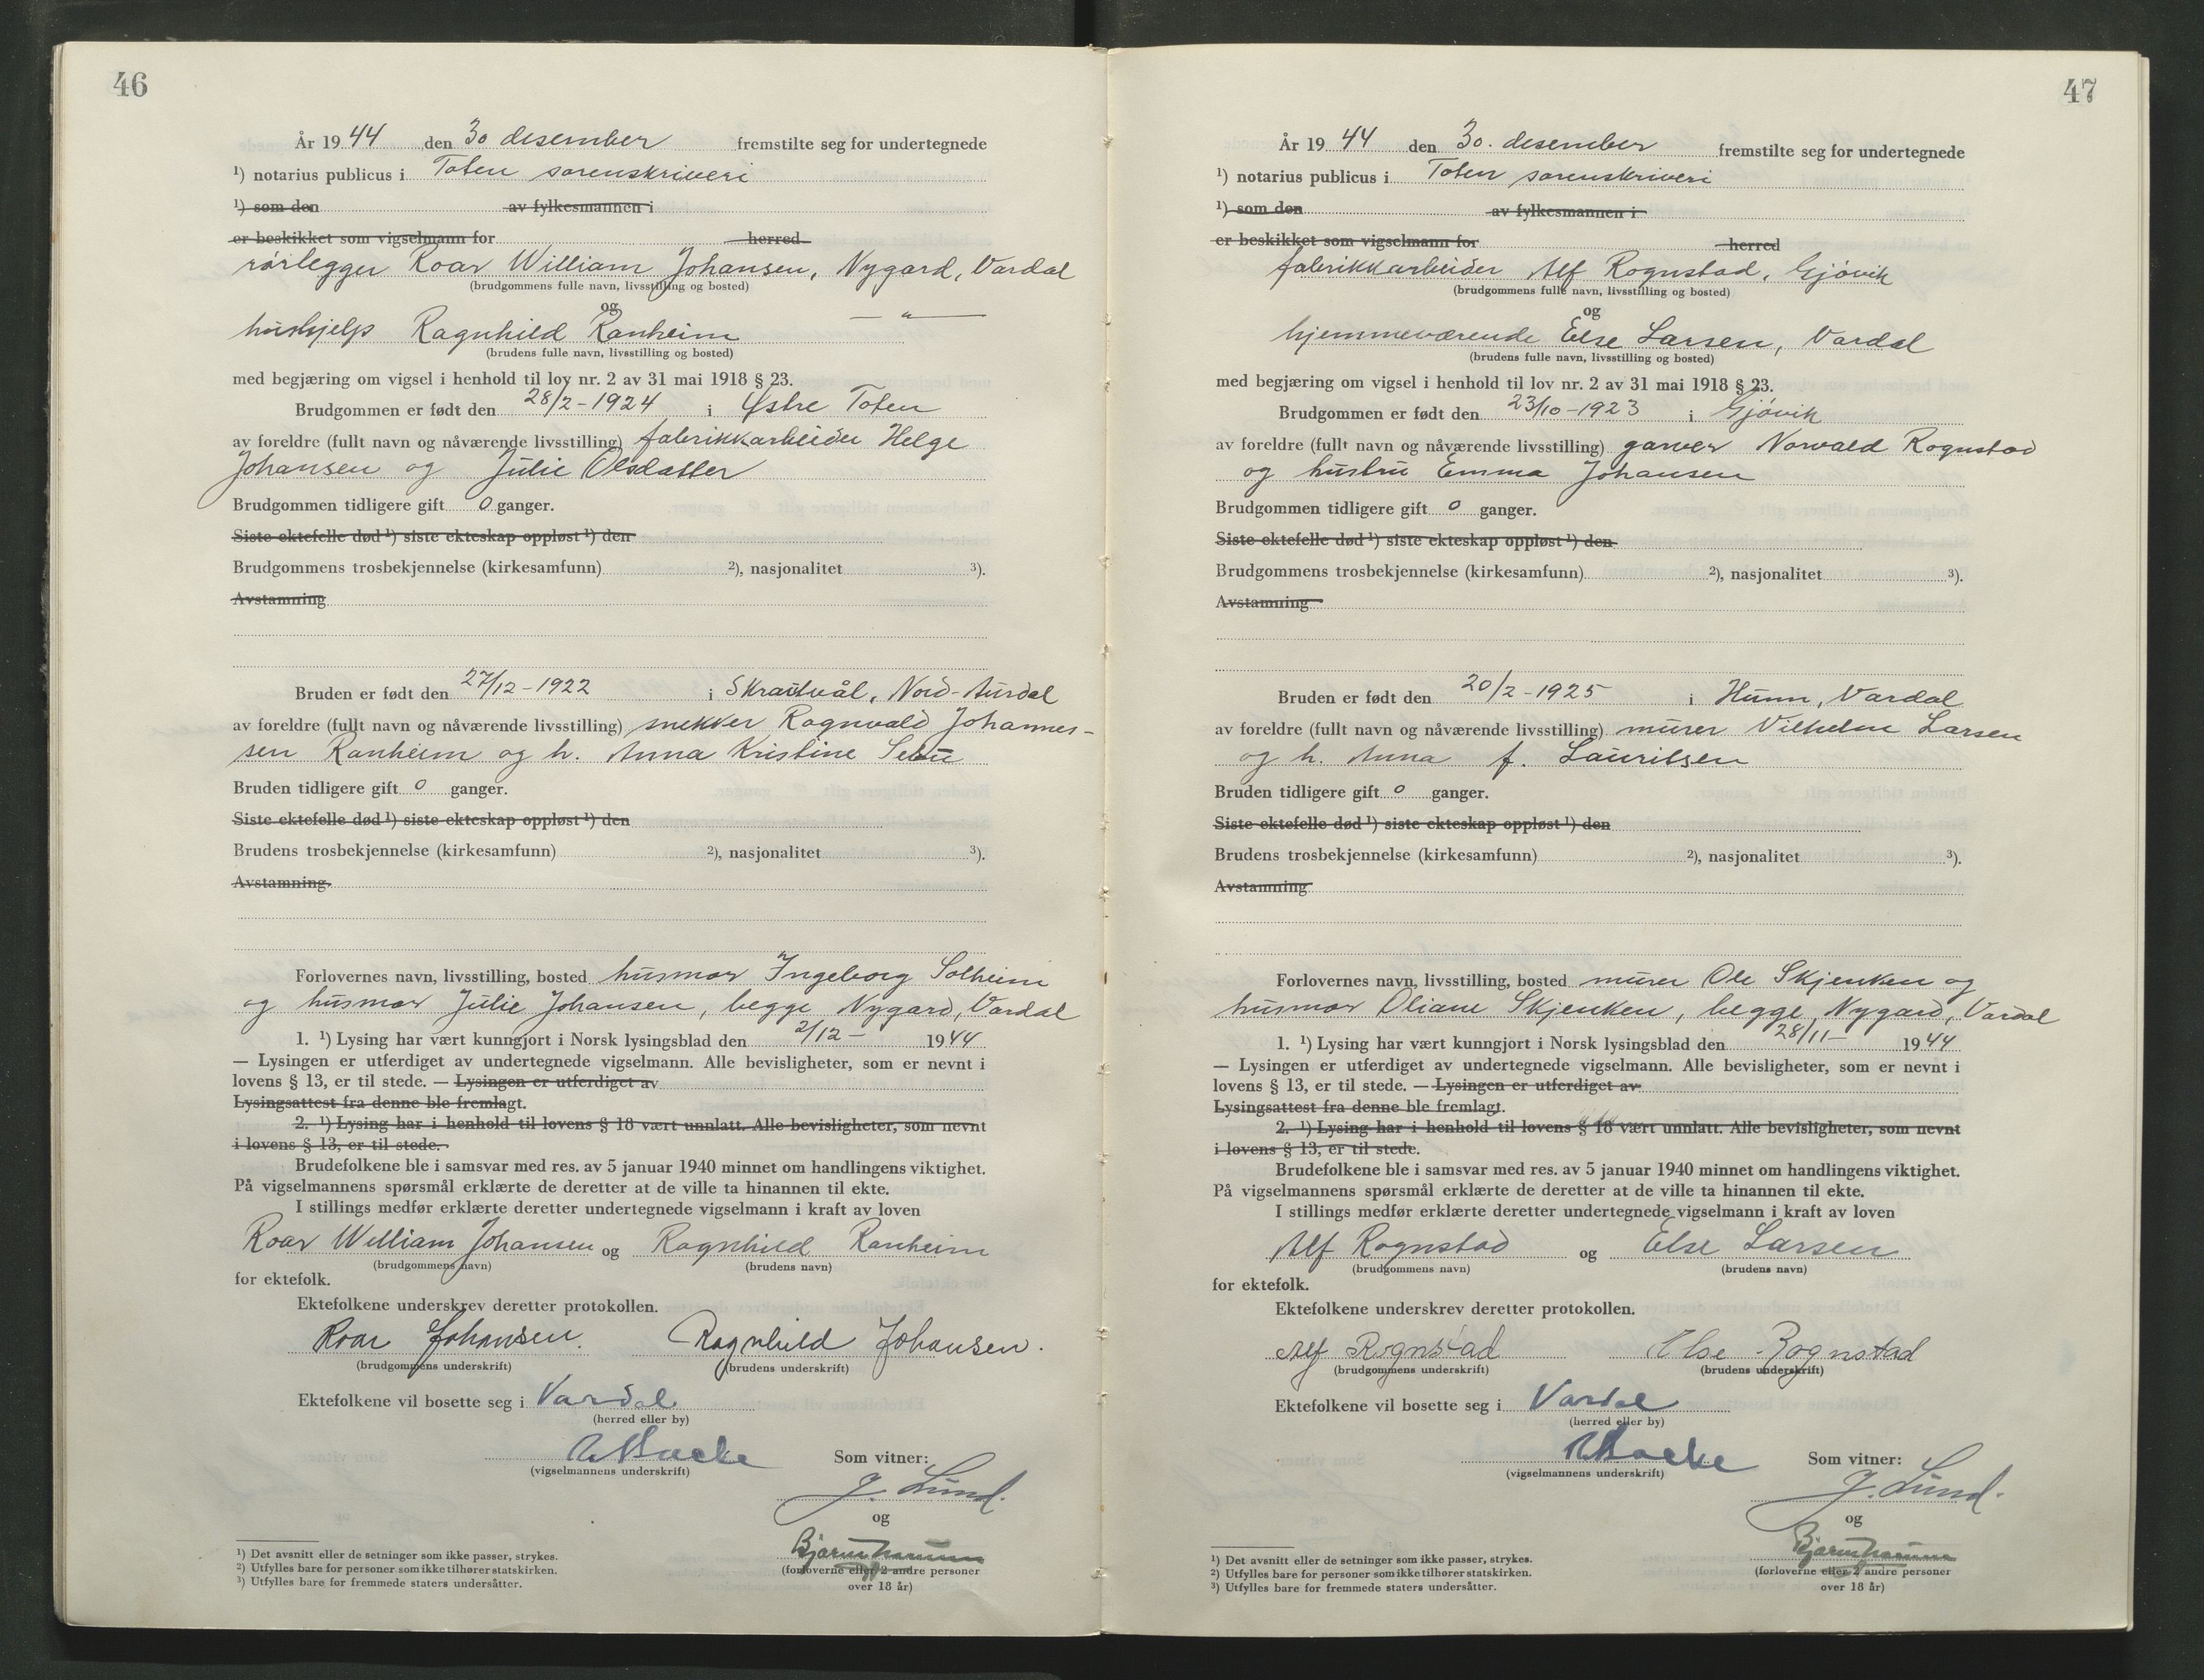 46
År 19 44 den 30 desember fremstilte seg for undertegnede
¹) notarius publicus i Toten sorenskriveri
¹) som den av fylkesmannen i
er beskikket som vigselmann for herred
rørlegger Roar William Johansen, Nygard, Vardal
(brudgommens fulle navn, livsstilling og bosted)
og
hushjelp Ragnhild Ranheim — " —
(brudens fulle navn, livsstilling og bosted)
med begjæring om vigsel i henhold til lov nr. 2 av 31 mai 1918 § 23.
Brudgommen er født den 28/2-1924 i Østre Toten
av foreldre (fullt navn og nåværende livsstilling) fabrikkarbeider Helge
Johansen og Julie Olsdatter
Brudgommen tidligere gift 0 ganger.
Siste ektefelle død ¹) siste ekteskap oppløst ¹) den
Brudgommens trosbekjennelse (kirkesamfunn) ²), nasjonalitet ³).
Avstamning
Bruden er født den 27/12-1922 i Skrautvål, Nord-Aurdal
av foreldre (fullt navn og nåværende livsstilling) snekker Ragnvald Johannes-
sen Ranheim og h. Anna Kristine
Bruden tidligere gift 0 ganger.
Siste ektefelle død ¹) siste ekteskap oppløst ¹) den
Brudens trosbekjennelse (kirkesamfunn) ²), nasjonalitet ³).
Avstamning
Forlovernes navn, livsstilling, bosted husmor Ingeborg Solheim
og husmor Julie Johansen, begge Nygard, Vardal
1. ¹) Lysing har vært kunngjort i Norsk lysingsblad den 2/12- 1944
— Lysingen er utferdiget av undertegnede vigselmann. Alle bevisligheter, som er nevnt i
lovens § 13, er til stede. — Lysingen er utferdiget av
Lysingsattest fra denne ble fremlagt.
2. ¹) Lysing har i henhold til lovens § 18 vært unnlatt. Alle bevisligheter, som nevnt
i lovens § 13, er til stede.
Brudefolkene ble i samsvar med res. av 5 januar 1940 minnet om handlingens viktighet.
På vigselmannens spørsmål erklærte de deretter at de ville ta hinannen til ekte.
I stillings medfør erklærte deretter undertegnede vigselmann i kraft av loven
Roar William Johansen og Ragnhild Ranheim
(brudgommens navn) (brudens navn)
for ektefolk.
Ektefolkene underskrev deretter protokollen.
Roar Johansen. Ragnhild Johansen.
(brudgommens underskrift) (brudens underskrift)
Ektefolkene vil bosette seg i Vardal
(herred eller by)
Som vitner:
(vigselmannens underskrift)
J. Lund.
og
(forloverne eller 2 andre personer
over 18 år)
¹) Det avsnitt eller de setninger som ikke passer, strykes.
²) Utfylles bare for personer som ikke tilhører statskirken.
³) Utfylles bare for fremmede staters undersåtter.
47
År 19 44 den 30. desember fremstilte seg for undertegnede
¹) notarius publicus i Toten sorenskriveri
¹) som den av fylkesmannen i
er beskikket som vigselmann for herred
fabrikkarbeider Alf Rognstad, Gjøvik
(brudgommens fulle navn, livsstilling og bosted)
og
hjemmeværende Else Larsen, Vardal
(brudens fulle navn, livsstilling og bosted)
med begjæring om vigsel i henhold til lov nr. 2 av 31 mai 1918 § 23.
Brudgommen er født den 23/10-1923 i Gjøvik
av foreldre (fullt navn og nåværende livsstilling) garver Norvald Rognstad
og hustru Emma Johansen
Brudgommen tidligere gift 0 ganger.
Siste ektefelle død ¹) siste ekteskap oppløst ¹) den
Brudgommens trosbekjennelse (kirkesamfunn) ²), nasjonalitet ³).
Avstamning
Bruden er født den 20/2-1925 i Hunn, Vardal
av foreldre (fullt navn og nåværende livsstilling) murer Vilhelm Larsen
og h. Anna f. Lauritsen
Bruden tidligere gift 0 ganger.
Siste ektefelle død ¹) siste ekteskap oppløst ¹) den
Brudens trosbekjennelse (kirkesamfunn) ²), nasjonalitet ³).
Avstamning
Forlovernes navn, livsstilling, bosted murer Ole Skjenken og
husmor Oliane Skjenken, begge Nygard, Vardal
1. ¹) Lysing har vært kunngjort i Norsk lysingsblad den 28/11- 1944
— Lysingen er utferdiget av undertegnede vigselmann. Alle bevisligheter, som er nevnt i
lovens § 13, er til stede. — Lysingen er utferdiget av
Lysingsattest fra denne ble fremlagt.
2. ¹) Lysing har i henhold til lovens § 18 vært unnlatt. Alle bevisligheter, som nevnt
i lovens § 13, er til stede.
Brudefolkene ble i samsvar med res. av 5 januar 1940 minnet om handlingens viktighet.
På vigselmannens spørsmål erklærte de deretter at de ville ta hinannen til ekte.
I stillings medfør erklærte deretter undertegnede vigselmann i kraft av loven
Alf Rognstad og Else Larsen
(brudgommens navn) (brudens navn)
for ektefolk.
Ektefolkene underskrev deretter protokollen.
Alf Rognstad Else Rognstad
(brudgommens underskrift) (brudens underskrift)
Ektefolkene vil bosette seg i Vardal
(herred eller by)
Som vitner:
(vigselmannens underskrift)
J. Lund.
og
(forloverne eller 2 andre personer
over 18 år)
¹) Det avsnitt eller de setninger som ikke passer, strykes.
²) Utfylles bare for personer som ikke tilhører statskirken.
³) Utfylles bare for fremmede staters undersåtter.